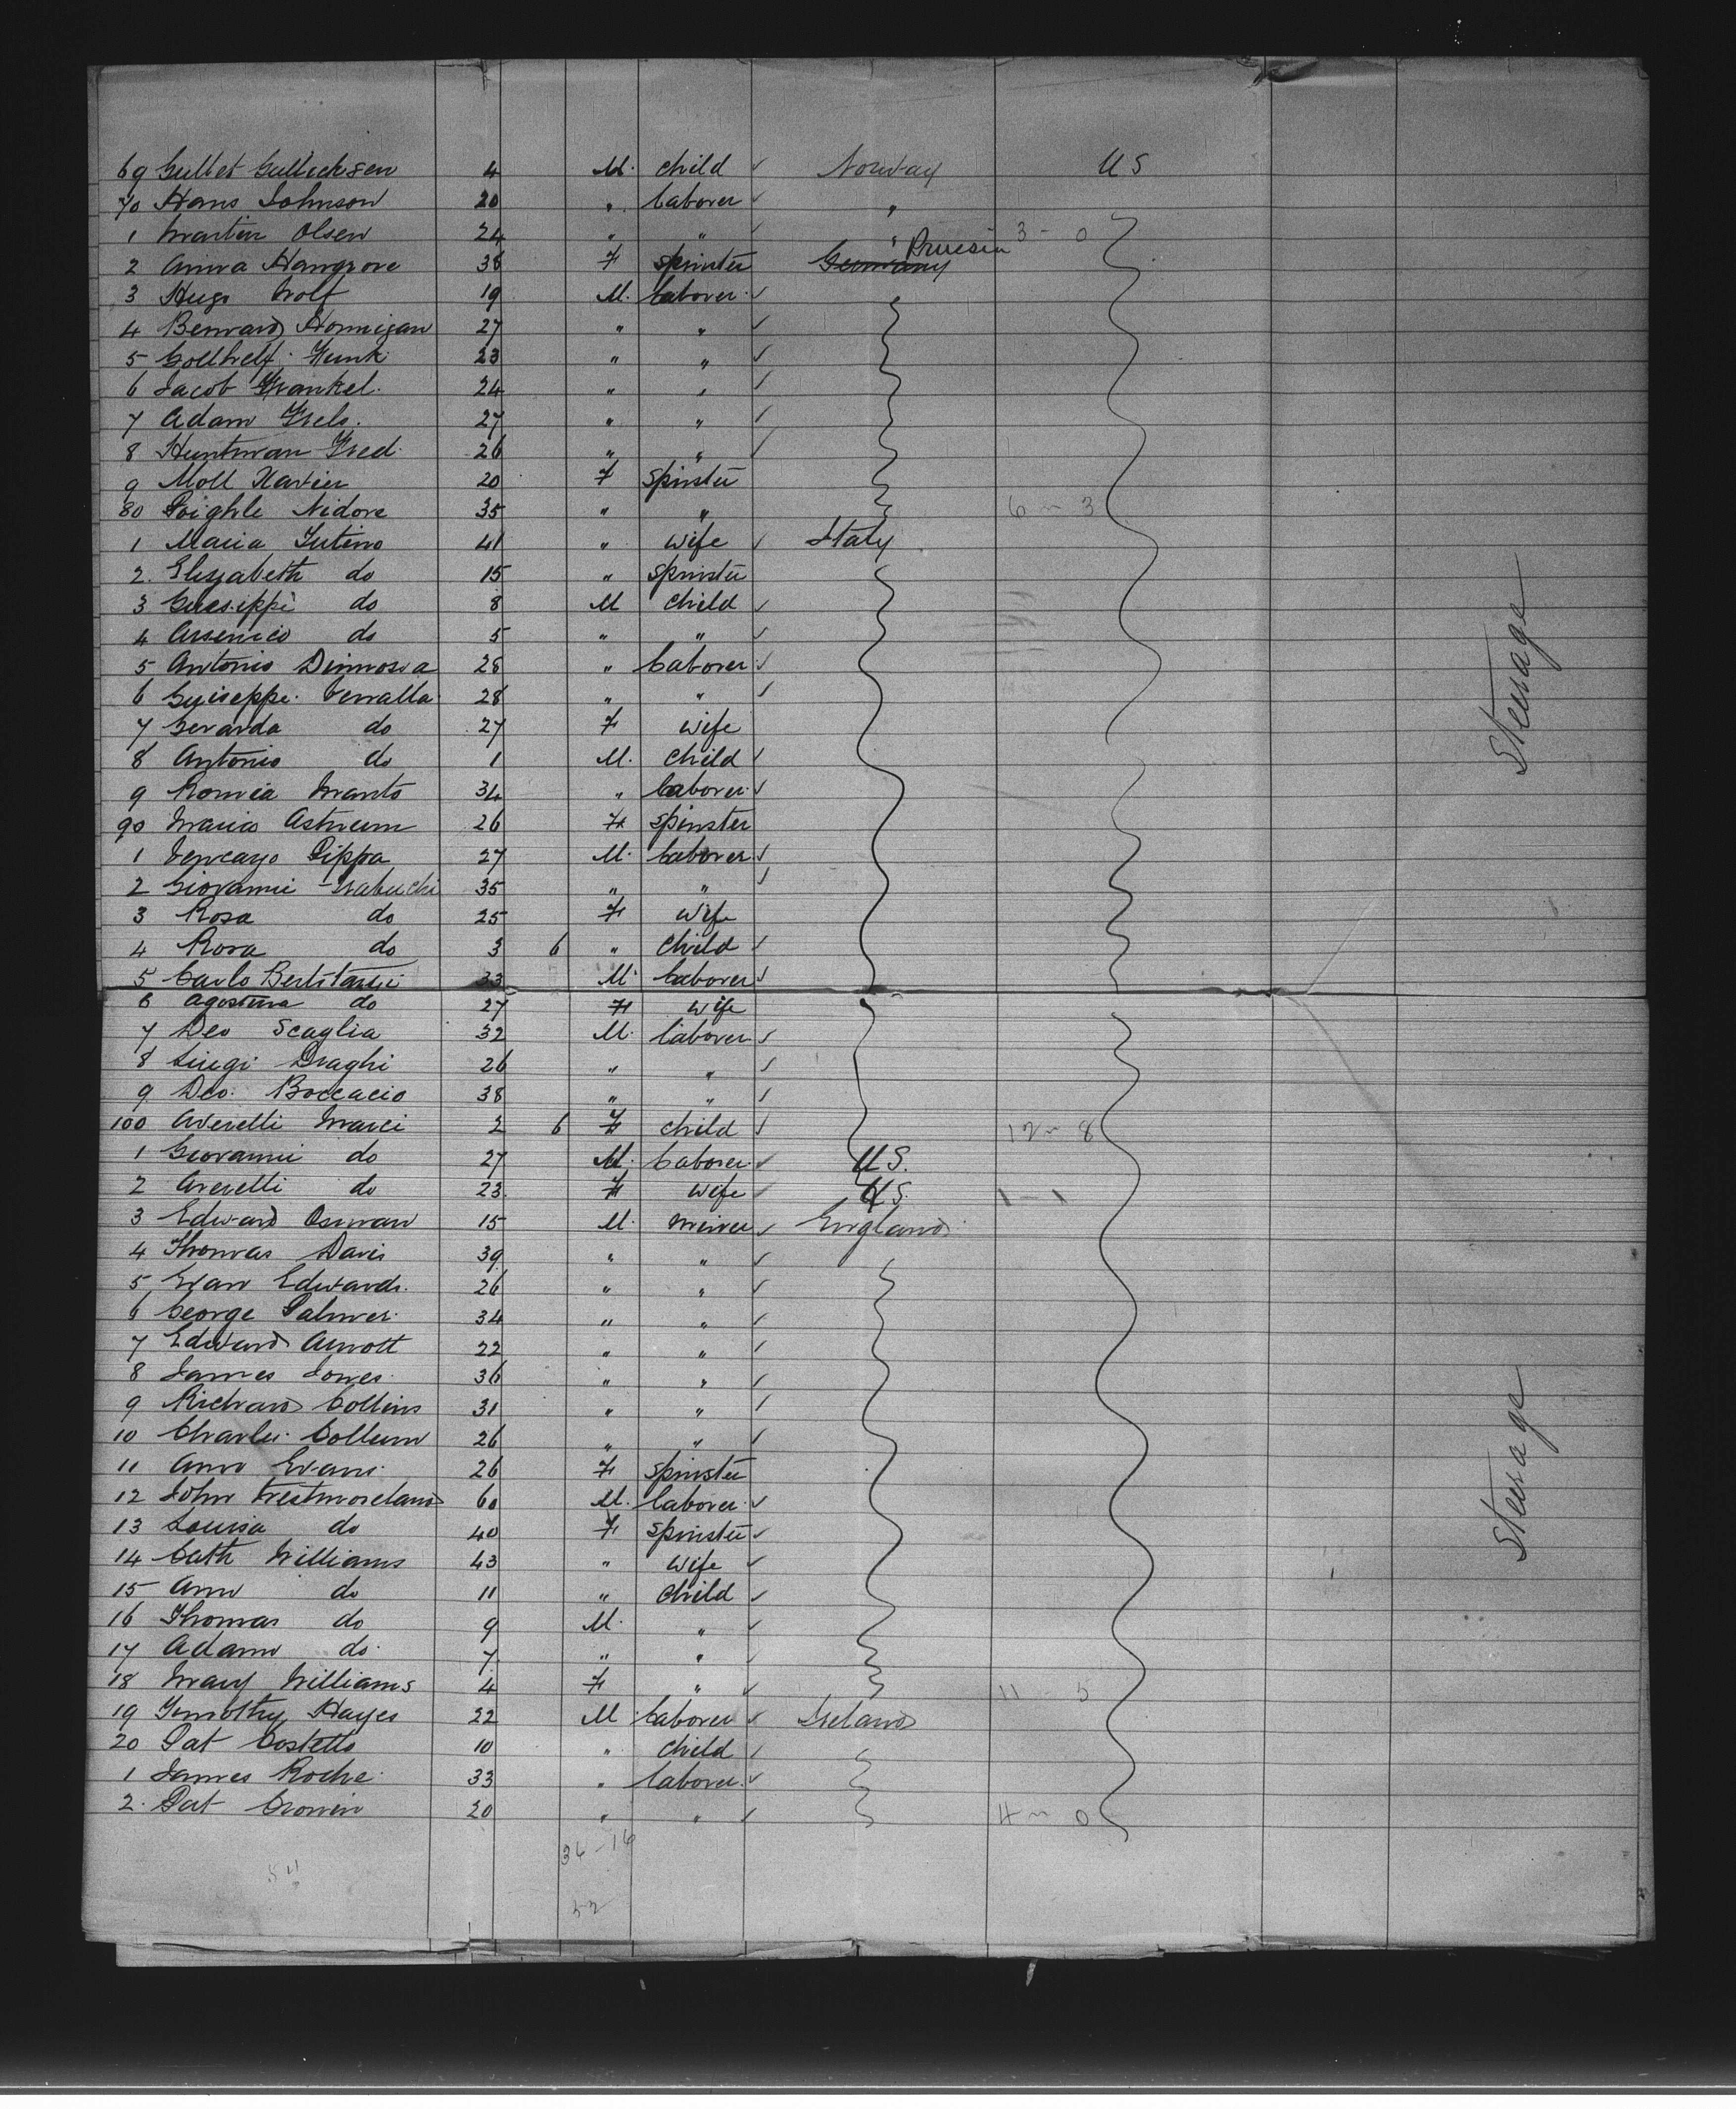 69 Gullet Gullicksen 4 M. child ✓ Norway US
70 Hans Johnson 20 " laborer ✓ "
1 Martin Olsen 24 " " ✓ " 3 - 0
2 Anna Hangrove 38 F spinster Germany Prussia
3 Hugo Wolf 19 M. laborer ✓
4 Bernard Hannigan 27 " " ✓
5 Gotthelf Funk 23 " " ✓
6 Jacob Frankel 24 " " ✓
7 Adam 27 " " ✓
8 Huntman Fred 26 " " ✓
9 Moll Xavier 20 F spinster
80 Nidore 35 " " 6 - 3
1 Maria 41 " wife ✓ Italy
2. Elizabeth do 15 " spinster
3 Guiseppi do 8 M child ✓
4 Arsenico do 5 " " ✓
5 Antonio 28 " laborer ✓
6 Guiseppi 28 " " ✓
7 Gerarda do 27 F wife
8 Antonio do 1 M. child ✓
9 Manto 34 " laborer ✓
90 Maria 26 F spinster
1 Pippa 27 M. laborer ✓
2 Giovanni 35 " " ✓
3 Rosa do 25 F wife
4 Rosa do 3 6 " child ✓
5 Carlo 33 M laborer ✓
6 Agostina do 27 F wife
7 Deo Scaglia 32 M. laborer ✓
8 Luigi Draghi 26 " " ✓
9 Deo. Boccacio 38 " " ✓
100 Averelli Marci 2 6 F child ✓ 12 - 8
1 Giovanni do 27 M. laborer ✓ US.
2 Averelli do 23. F wife ✓ US. 1 - 1
3 Edward Osman 15 M. miner ✓ England
4 Thomas Davis 39 " " ✓
5 Evan Edwards. 26 " " ✓
6 George Palmer. 34 " " ✓
7 Edward Arnott 22 " " ✓
8 James Jones 36 " " ✓
9 Richard Collins 31 " " ✓
10 Charles Collum 26 " " ✓
11 Ann Evans 26 F spinster
12 John Westmoreland 60 M. laborer ✓
13 Louisa do 40 F spinster ✓
14 Cath Williams 43 " wife ✓
15 Ann do 11 " child ✓
16 Thomas do 9 M. " ✓
17 Adam do. 7 " " ✓
18 Mary Williams 4 F " ✓ 11 - 5
19 Timothy Hayes 22 M laborer ✓ Ireland
20 Pat Costello 10 " child ✓
1 James Roche 33 " laborer ✓
2. Pat Cronin 20 " " ✓ 4 - 0
Steerage
Steerage
36 - 16
52